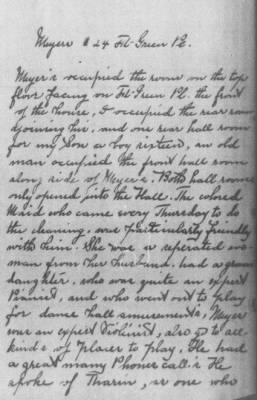 Meyers # 24 Ft-Green Pl.
Meyer's occupied the room on the top
floor, facing on Ft-Green Pl. the front
of the house, I occupied the rear room
adjoining his, and one rear hall room
for my Son a boy sixteen, an old
man occupied the front hall room
along side of Meyer's. Both hall rooms
only opened into the Hall. The colored
Maid who came every Thursday to do
the cleaning, was particularly friendly
with him. She was a seperated wo-
man from her husband. had a grown
daughter, who was quite an expert
Pianist, and who went out to play
for dance hall amusements, Meyer
was an expert Violinist, also to all
kinds of places to play. He had
a great many Phone calls. He
spoke of Tharin, as one who